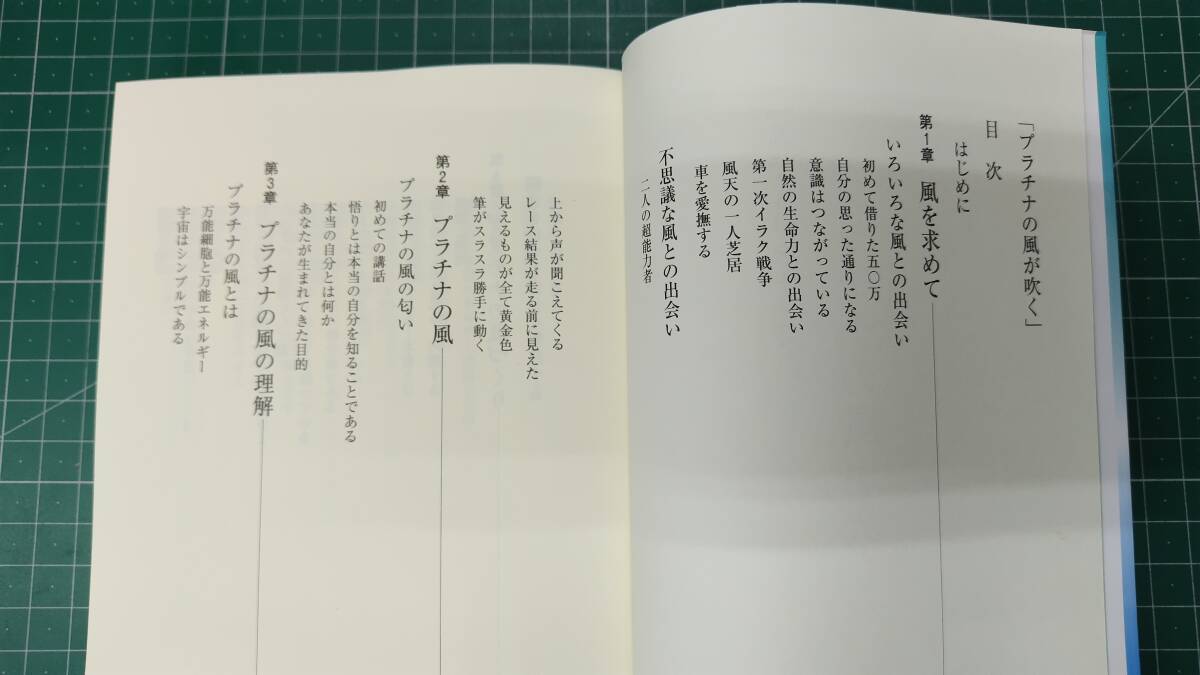 「プラチナの風が吹く」
目次
はじめに
第1章 風を求めて
いろいろな風との出会い
初めて借りた五〇万
自分の思った通りになる
意識はつながっている
自然の生命力との出会い
第一次イラク戦争
風天の一人芝居
車を愛撫する
不思議な風との出会い
二人の超能力者
上から声が聞こえてくる
レース結果が走る前に見えた
見えるものが全て黄金色
筆がスラスラ勝手に動く
第2章 プラチナの風
プラチナの風の匂い
初めての講話
悟りとは本当の自分を知ることである
本当の自分とは何か
あなたが生まれてきた目的
第3章 プラチナの風の理解
プラチナの風とは
万能細胞と万能エネルギー
宇宙はシンプルである